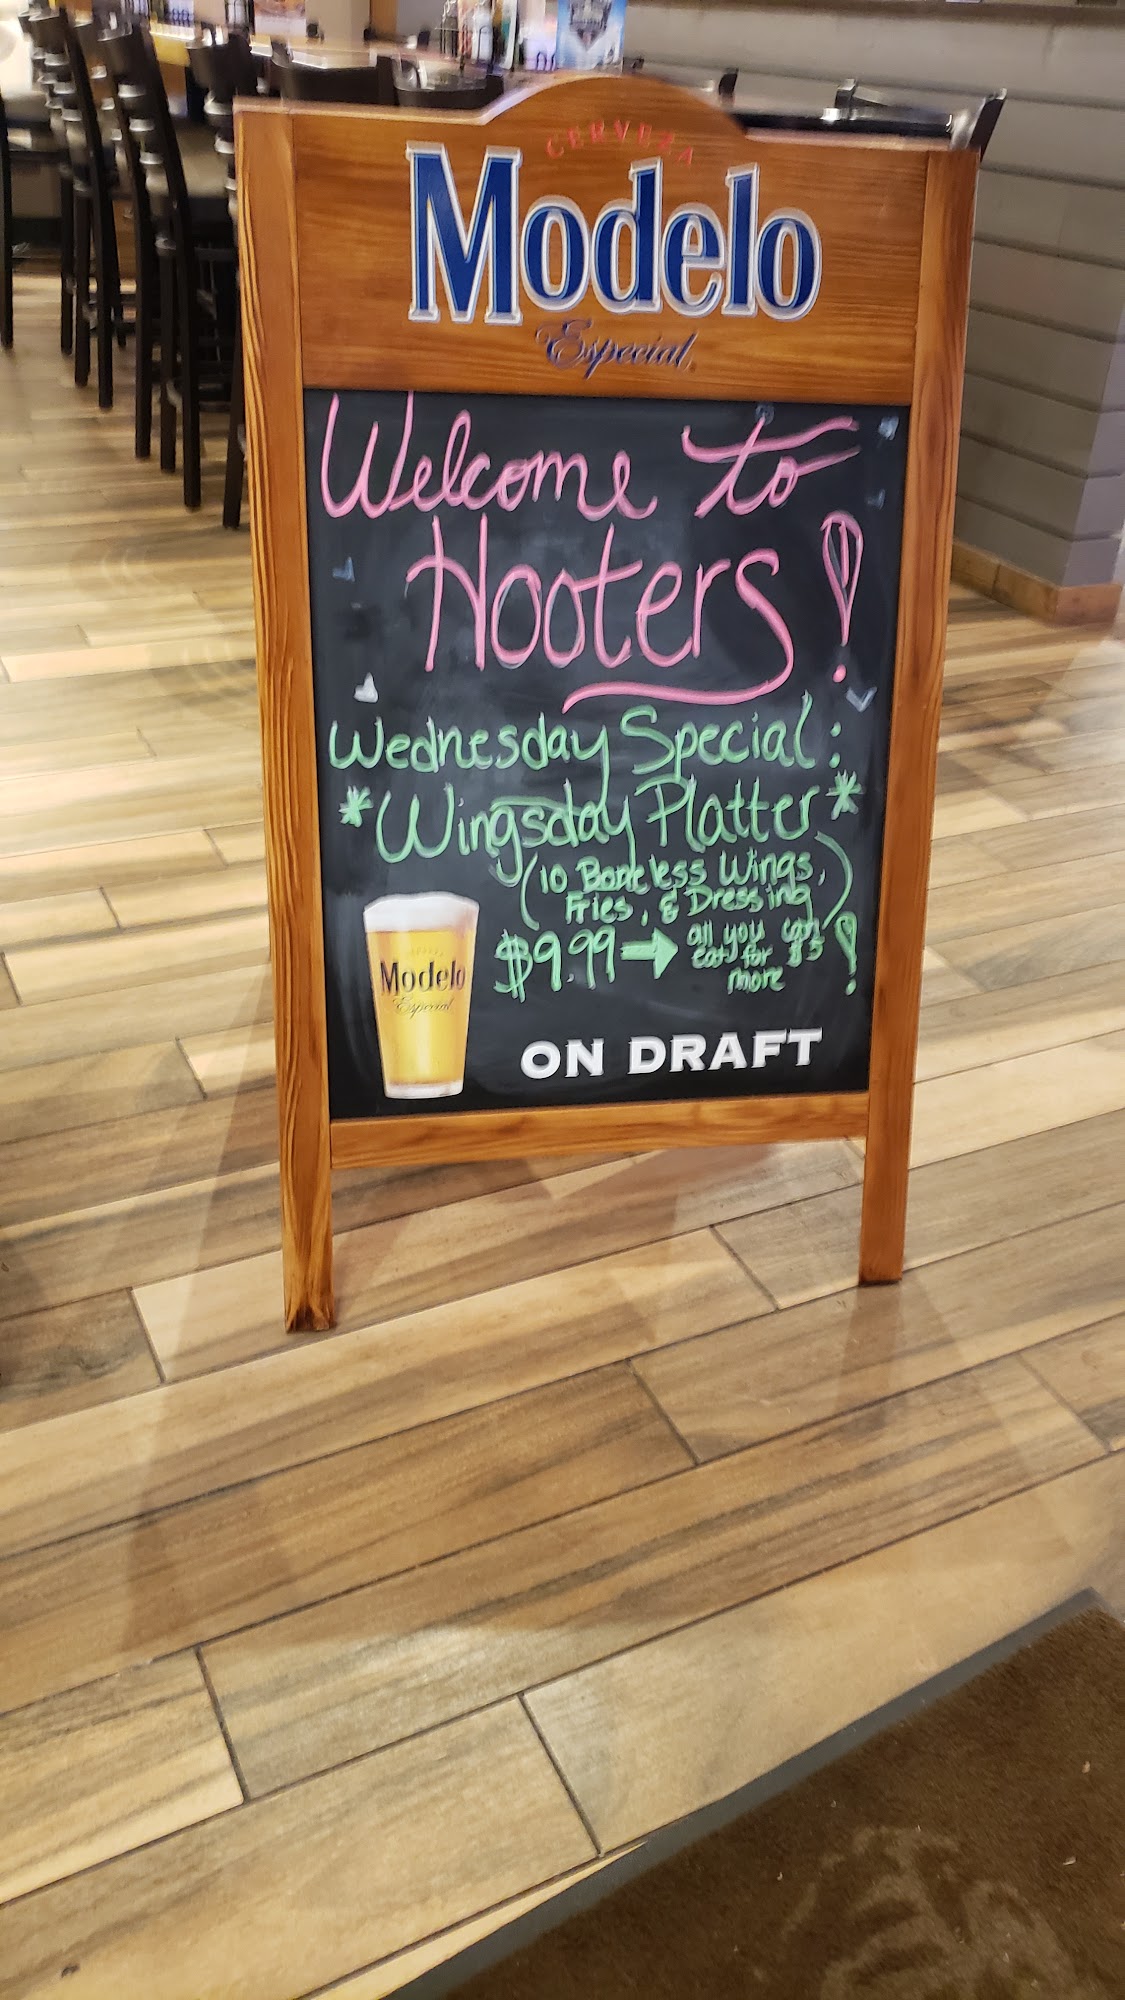 CERVEZA
Modelo
Especial
Welcome to
Hooters!
Wednesday Special:
*Wingsday Platter*
(10 Boneless Wings,
Fries, & Dressing)
$9.99 → all you can
eat for $5
more!
Modelo
Especial
ON DRAFT